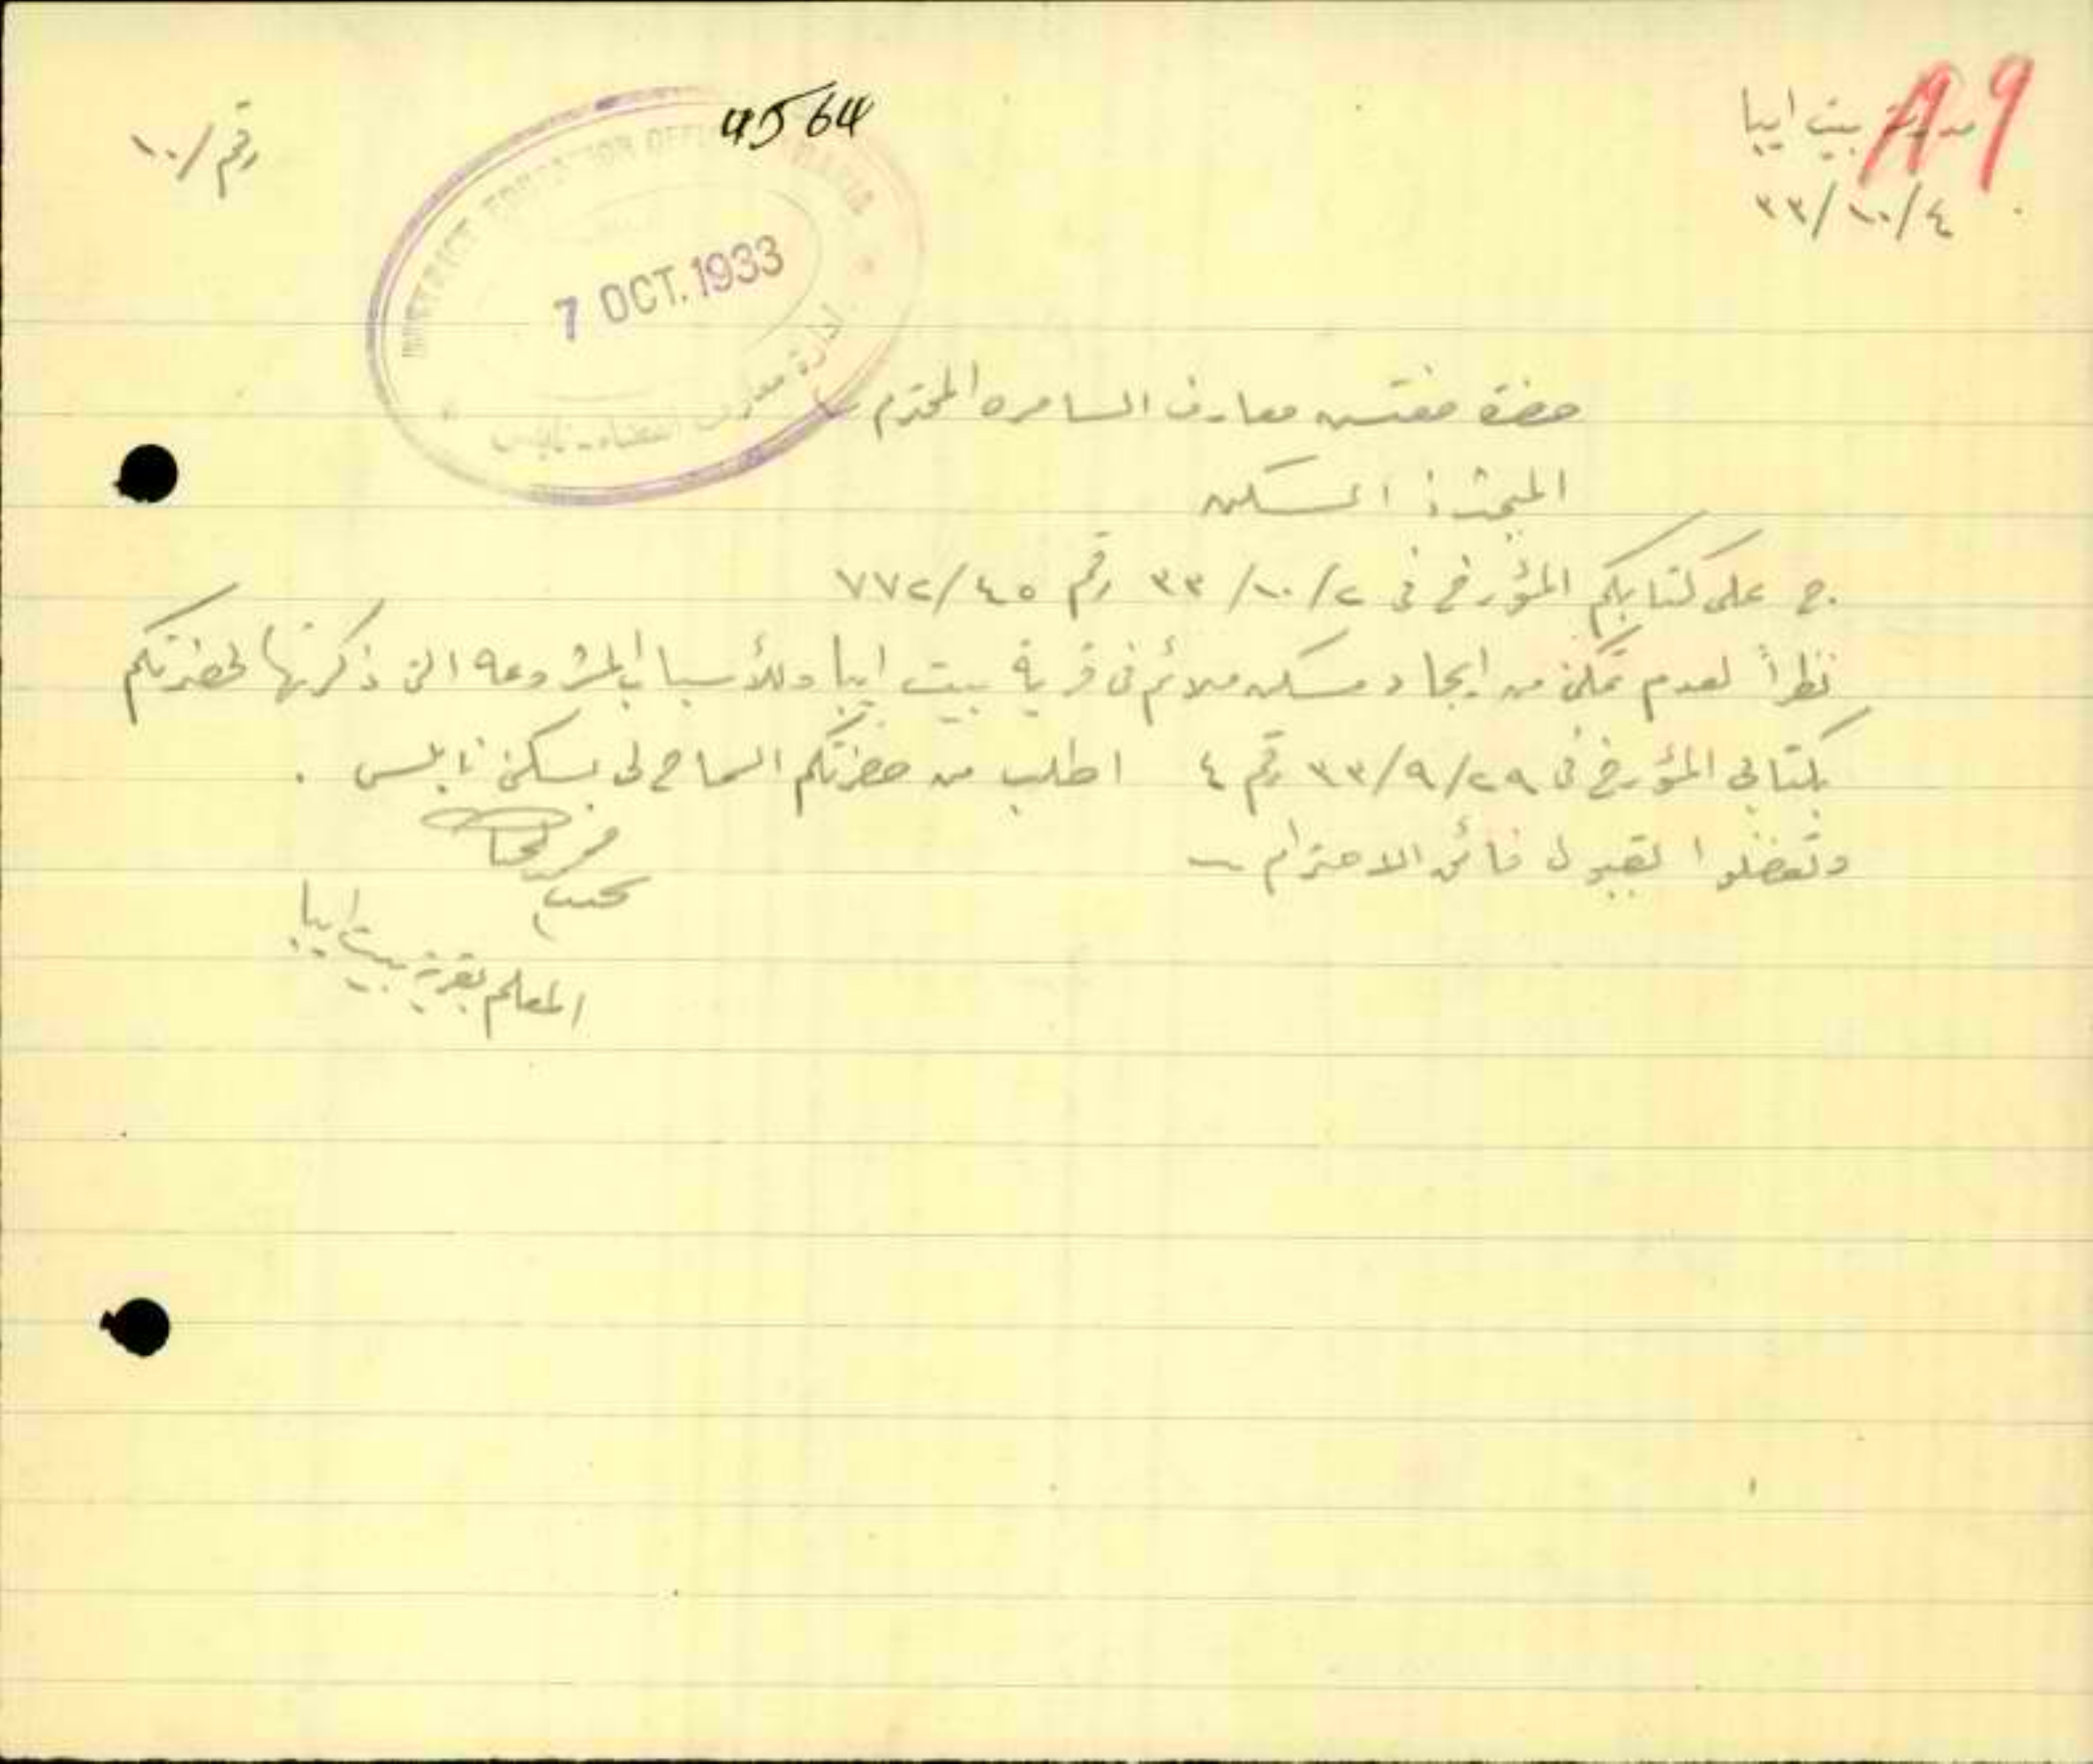 مدرسة بيت ايبا
99
٣٣/١٠/٤
رقم /١٠
4564
DISTRICT EDUCATION OFFICE SAMARIA
7 OCT. 1933
ادارة معارف القضاء - نابلس
حضرة مفتش معارف السامره المحترم
المبحث : السكن
ج على كتابكم المؤرخ في ٣٣/١٠/٢ رقم ٧٧٢/٤٥
نظراً لعدم تمكني من ايجاد مسكن ملائم في قرية بيت ايبا وللأسباب المشروعه التي ذكرتها لحضرتكم
بكتابي المؤرخ في ٣٣/٩/٢٩ رقم ٤ اطلب من حضرتكم السماح لي بسكنى نابلس .
وتفضلوا بقبول فائق الاحترام
المعلم بقرية بيت ايبا